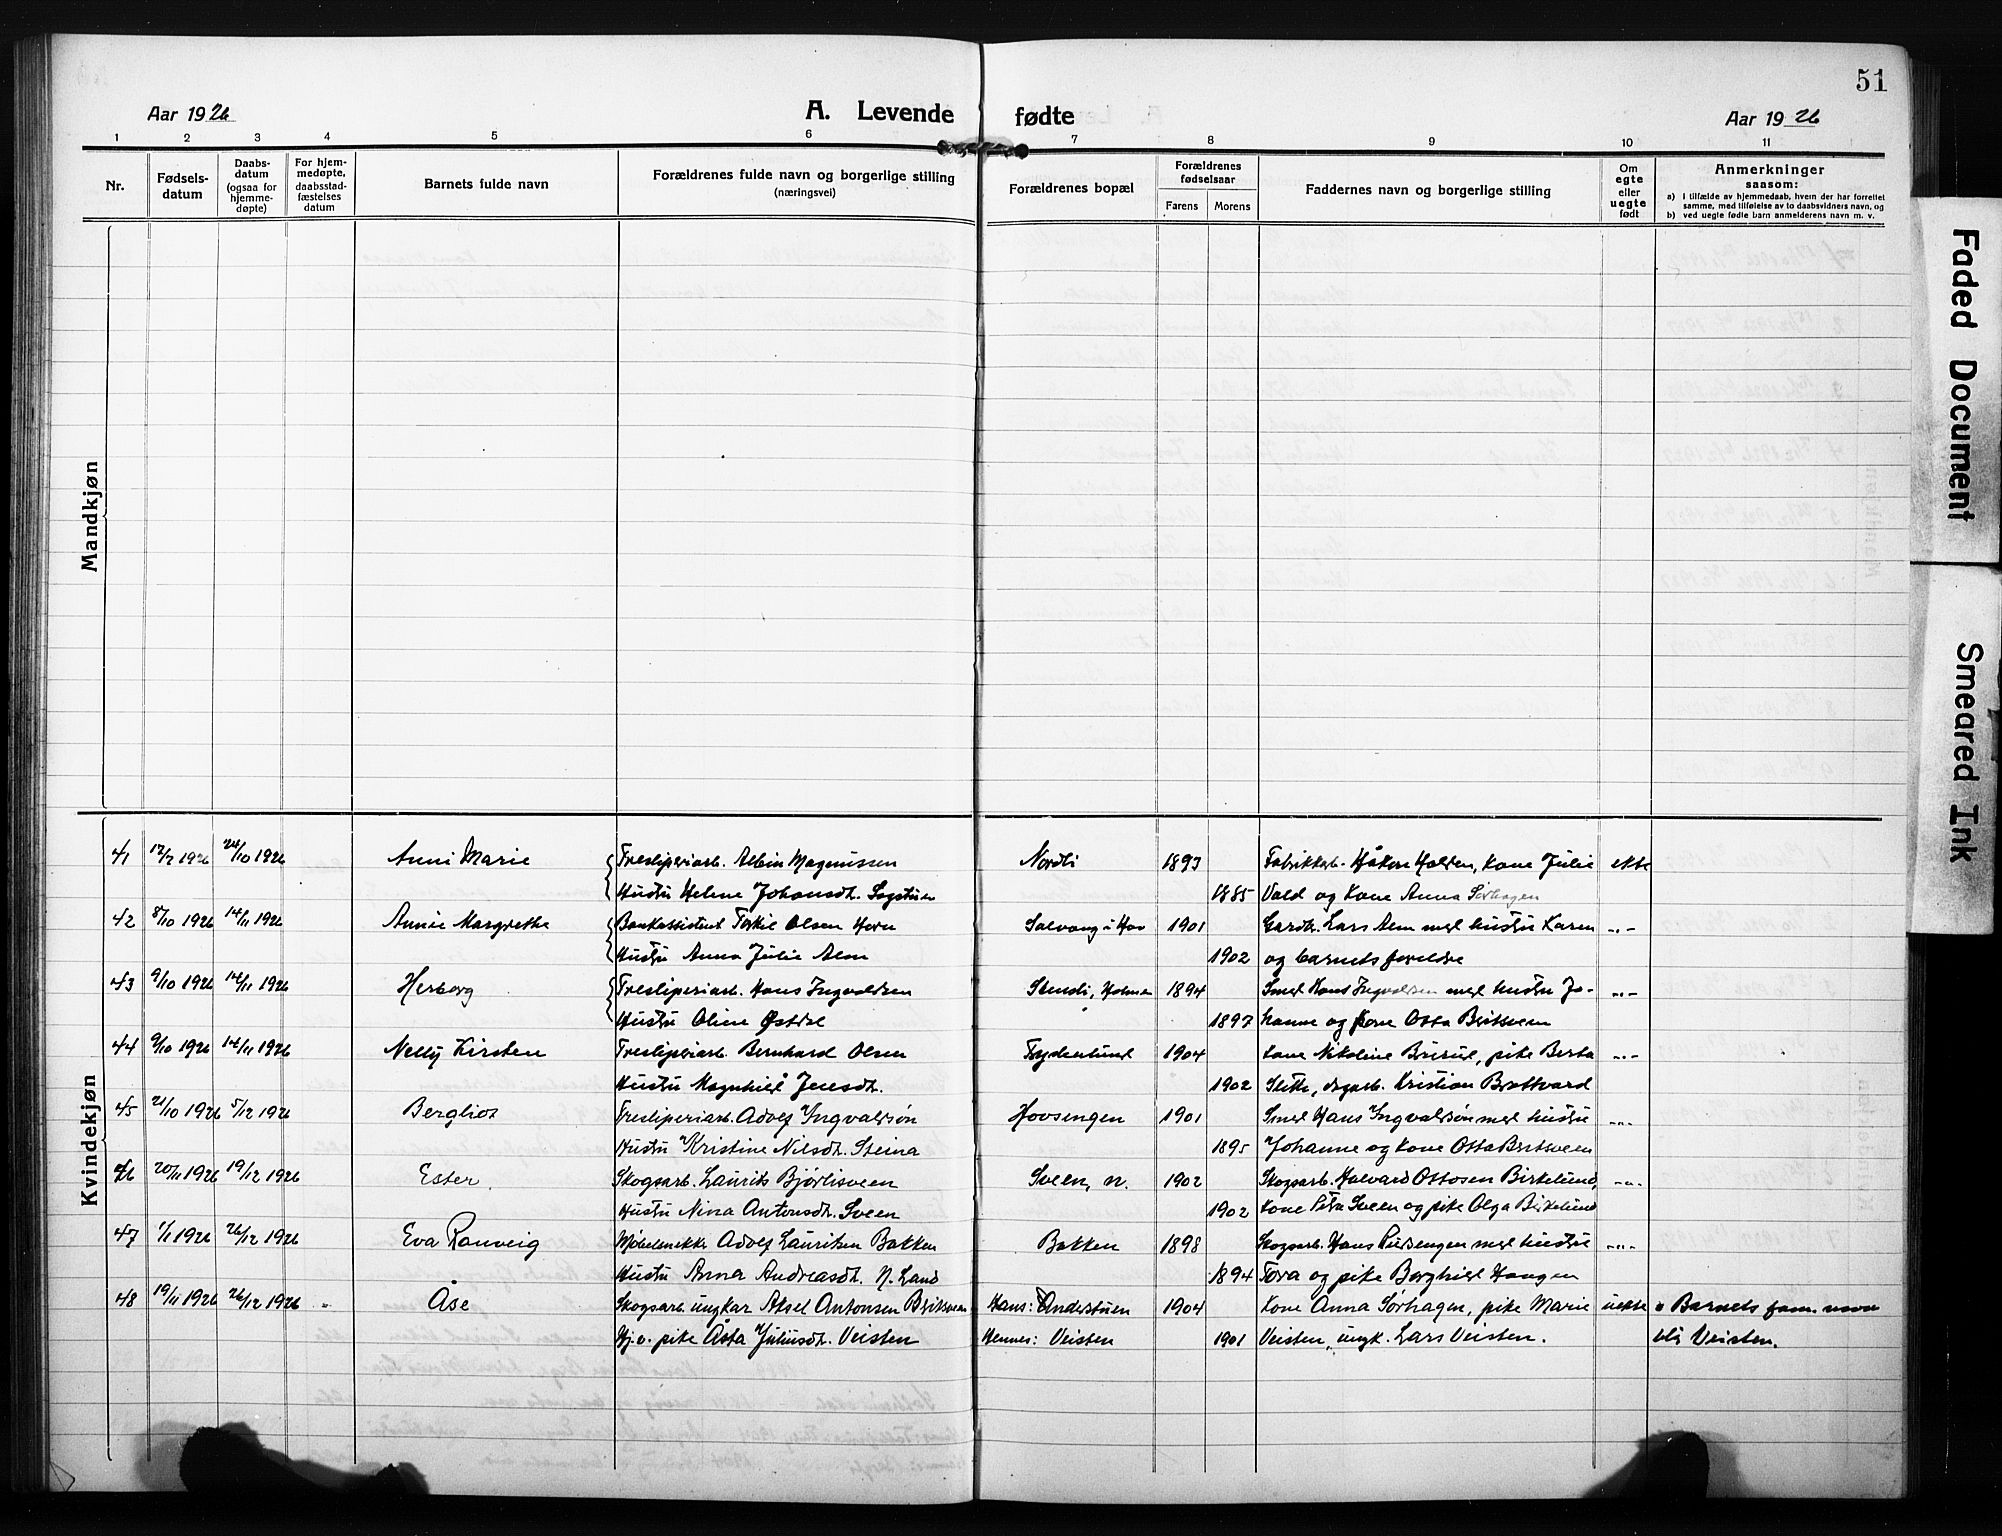 51
Aar 1926
A. Levende fødte
Aar 1926
1 2 3 4 5 6 7 8 9 10 11
Nr.
Fødsels-
datum
Daabs-
datum
(ogsaa for
hjemme-
døpte)
For hjem-
medøpte,
daabsstad-
fæstelses
datum
Barnets fulde navn
Forældrenes fulde navn og borgerlige stilling
(næringsvei)
Forældrenes bopæl
Forældrenes
fødselsaar
Farens Morens
Faddernes navn og borgerlige stilling
Om
egte
eller
uegte
født
Anmerkninger
saasom:
a) I tilfælde av hjemmedaab, hvem der har forrettet
samme, med tilføielse av to daabsvidners navn, og
b) ved uegte fødte barn anmelderens navn m. v.
Mandkjøn
Kvindekjøn
41 12/7 1926 24/10 1926 Anni Marie Tresliperiarb. Albin Magnussen Nordli 1893 Fabrikkarb. Håkon Holden, kone Julie ekte
Hustru Helene Johansdt. Sagstuen 1885 Vold og kone Anna Sørhagen
42 8/10 1926 14/11 1926 Annie Margrethe Bankassistent Torkil Olsen Horn Solvang i Hov 1901 Gardbr. Lars Alm med hustru Karen -"-
Hustru Anna Julie Alm 1902 og barnets foreldre
43 9/10 1926 14/11 1926 Herborg Tresliperiarb. Hans Ingvaldsen Stensli, Holmen 1894 Smed Hans Ingvaldsen med hustru Jo- -"-
Hustru Oline Østdal 1897 hanne og kone Otta Britsveen
44 9/10 1926 14/11 1926 Nelly Kirsten Tresliperiarb. Bernhard Olsen Frydenlund 1904 kone Nikoline Brurud, pike Berta -"-
Hustru Magnhild Jensdt. 1902 Slette, dagarb. Kristian Brattvard
45 21/10 1926 5/12 1926 Bergliot Tresliperiarb. Adolf Ingvaldsøn Hovsengen 1901 Smed Hans Ingvaldsøn med hustru -"-
Hustru Kristine Nilsdt. Steina 1895 Johanne og kone Otta Britsveen
46 20/11 1926 19/12 1926 Ester. Skogsarb. Laurits Bjørlisveen Sveen, n. 1902 Skogsarb. Halvard Ottosen Birkelund, -"-
Hustru Nina Antonsdt. Sveen 1902 kone Petra Sveen og pike Olga Birkelund
47 1/11 1926 26/12 1926 Eva Ranveig Møbelsnekker Adolf Lauritsen Bakken Bakken 1898 Skogsarb. Hans Persengen med hustru -"-
Hustru Anna Andreasdt. N. Land 1894 Tora og pike Borghild Haugen
48 19/11 1926 26/12 1926 " Åse Skogsarb. ungkar Aksel Antonsen Britsveen Hans: Anderstuen 1904 kone Anna Sørhagen, pike Marie uekte Barnets fam. navn
Hj.v. pike Åsta Juliusdt. Veisten Hennes: Veisten 1901 Veisten, ungk. Lars Veisten. blir Veisten.
Faded Document
Smeared Ink